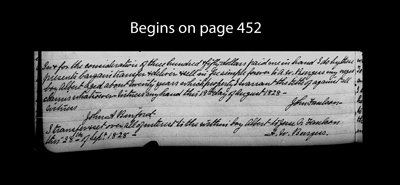 Begins on page 452
I for the consideration of three hundred & fifty dollars paid me in hand I do by these
presents bargain transfer & deliver & sell in fee simple forever to A. W. Burgess my negro
boy Albert aged about twenty years which property I warrant the title of against all
claims whatsoever witness my hand this 19th day of August 1828
Witness
John A Binford
I transfer all my over interest to the within boy Albert to Jesse
this 28th of Sept. 1828
A. W. Burgess